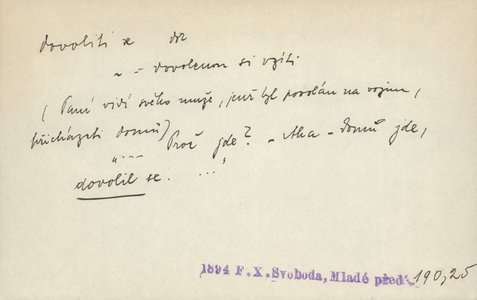 dovoliti se dok
„ = dovolenou si vzíti
(Paní vidí svého muže, jenž byl povolán na vojnu,
přicházeti domů)
„... Proč jde? – Aha – domů jde,
dovolil se. ..."
1894 F.X.Svoboda, Mladé před. 190,25